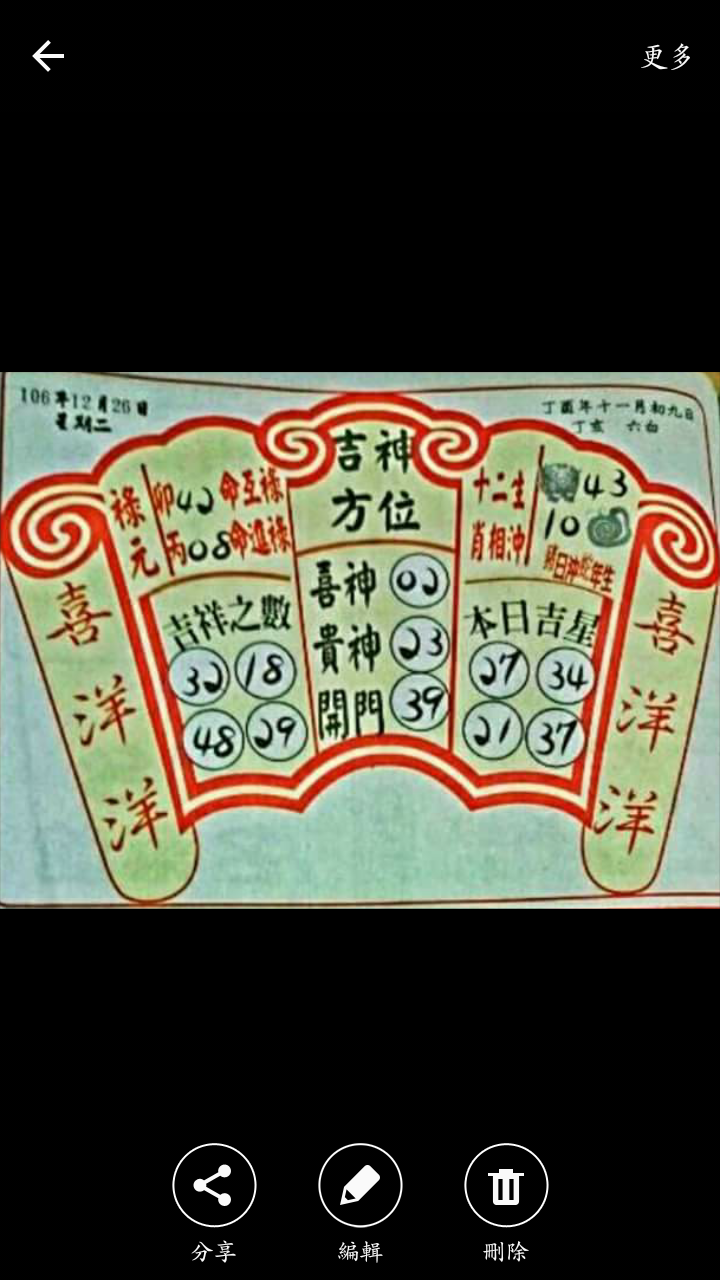 更多
106年12月26日
星期二
丁酉年十一月初九日
丁亥 六白
吉神
方位
祿元
卯42命互祿
丙08命進祿
十二生
肖相沖
43
10
豬日沖蛇年生
喜神 02
貴神 23
開門 39
吉祥之數
32 18
48 29
本日吉星
27 34
21 37
喜洋洋
喜洋洋
分享
編輯
刪除